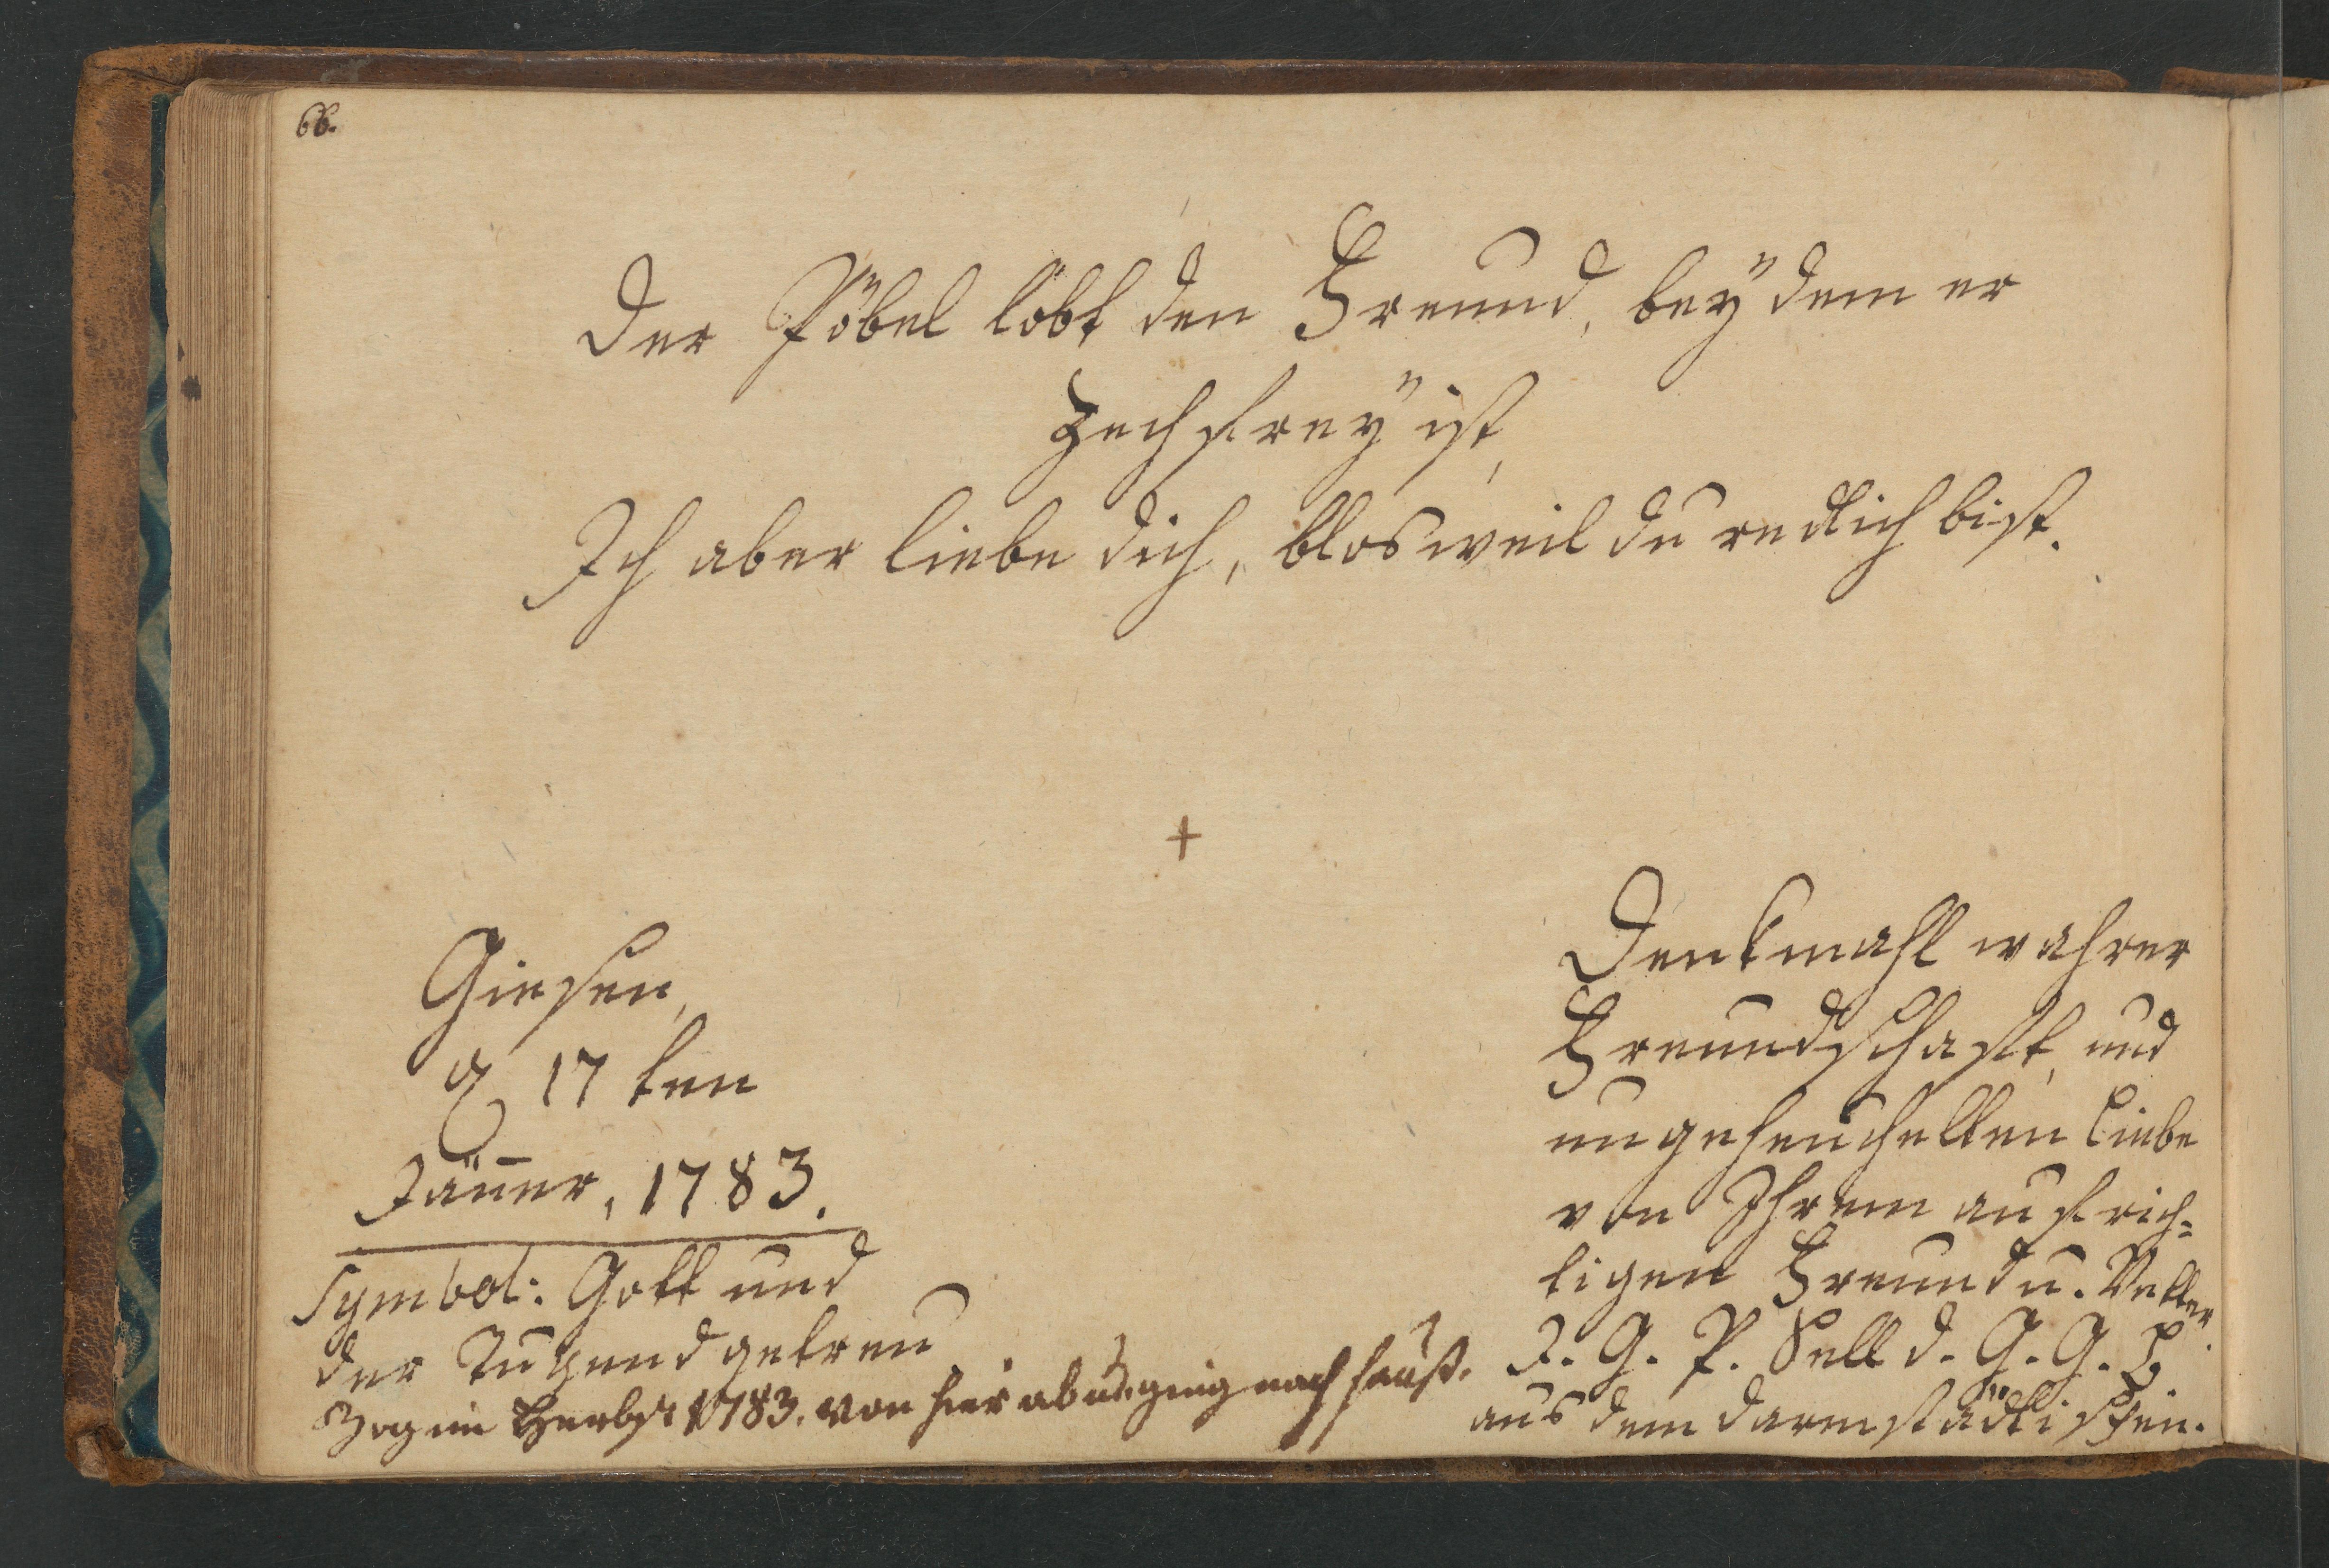 66.
Der Pöbel lobt den Freund, bey dem er
Zechfrey ist,
Ich aber liebe dich, blos weil du redlich bist.
+
Giesen,
d 17 ten
Jän̄er, 1783.
Symbol: Gott und
der Tugend getreu
Zog im Herbst 1783. von hier ab u. ging nach Hauß.
Denkmahl wahrer
Freundschafft, und
ungeheuchelten Liebe
von Ihrem aufrich-
tigen Freund u. Vetter
J. G. P. Sell d. G. G. B.
aus dem Darmstädtischen.